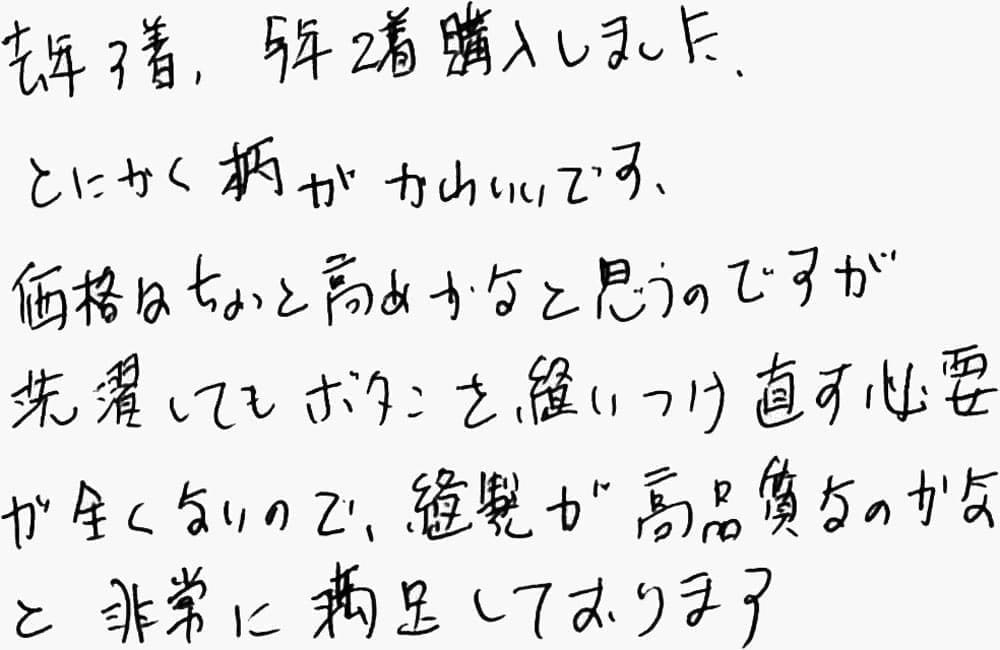 去年3着、今年2着購入しました。
とにかく柄がかわいいです、
価格はちょっと高めかなと思うのですが
洗濯してもボタンを縫いつけ直す必要
が全くないので、縫製が高品質なのかな
と非常に満足しております